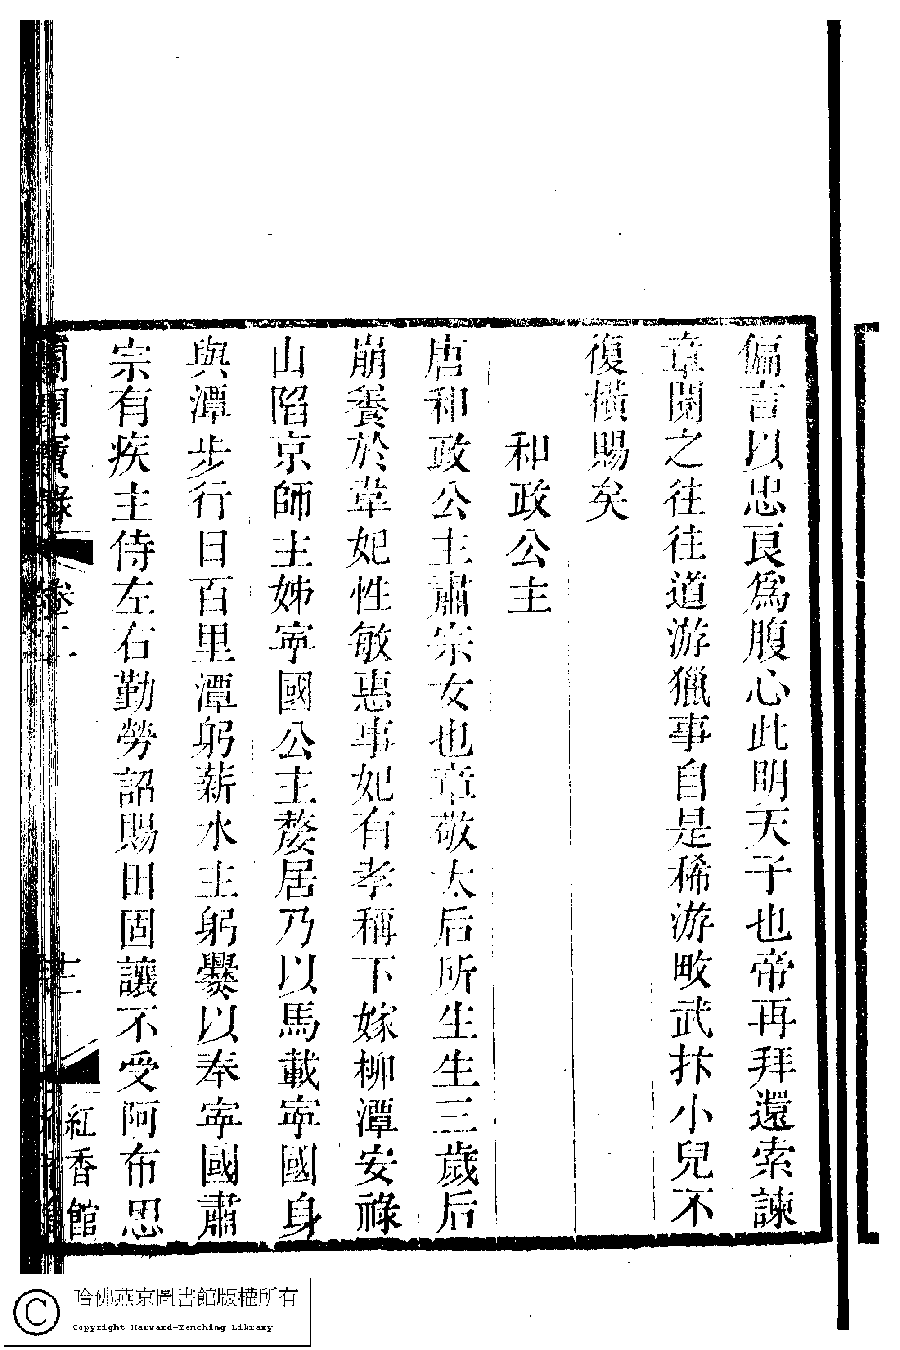 偏言以忠良為腹心此明天子也帝再拜還索諫
章閱之往往道游獵事自是稀游畋武抃小兒不
復橫賜矣
和政公主
唐和政公主肅宗女也章敬太后所生生三歲后
崩養於韋妃性敏惠事妃有孝稱下嫁柳潭安祿
山陷京師主姊寧國公主嫠居乃以馬載寧國身
與潭步行日百里潭躬薪水主躬爨以奉寧國肅
宗有疾主侍左右勤勞詔賜田固讓不受阿布思
卷二
紅香館
哈佛燕京圖書館版權所有
Copyright Harvard-Yenching Library